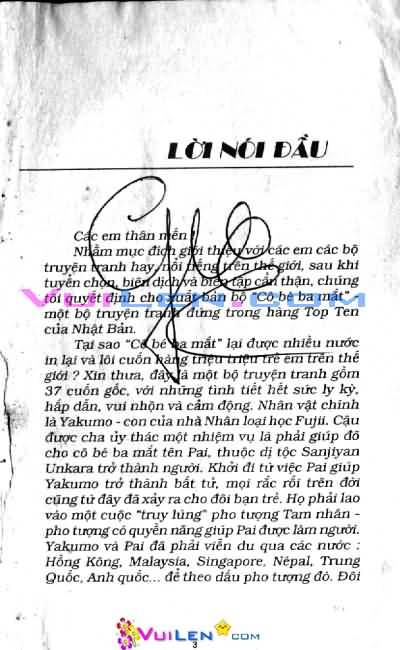 VUILEN.COM
LỜI NÓI ĐẦU
Các em thân mến !
Nhằm mục đích giới thiệu với các em các bộ
truyện tranh hay, nổi tiếng trên thế giới, sau khi
tuyển chọn, biên dịch và biên tập cẩn thận, chúng
tôi quyết định cho xuất bản bộ "Cô bé ba mắt",
VUILEN.COM
một bộ truyện tranh đứng trong hàng Top Ten
của Nhật Bản.
Tại sao "Cô bé ba mắt" lại được nhiều nước
in lại và lôi cuốn hàng triệu triệu trẻ em trên thế
giới ? Xin thưa, đây là một bộ truyện tranh gồm
37 cuốn gốc, với những tình tiết hết sức ly kỳ,
hấp dẫn, vui nhộn và cảm động. Nhân vật chính
là Yakumo - con của nhà Nhân loại học Fujii. Cậu
được cha ủy thác một nhiệm vụ là phải giúp đỡ
cho cô bé ba mắt tên Pai, thuộc dị tộc Sanjiyan
Unkara trở thành người. Khởi đi từ việc Pai giúp
Yakumo trở thành bất tử, mọi rắc rối trên đời
cũng từ đây đã xảy ra cho đôi bạn trẻ. Họ phải lao
vào một cuộc "truy lùng" pho tượng Tam nhãn -
pho tượng có quyền năng giúp Pai được làm người.
Yakumo và Pai đã phải viễn du qua các nước :
Hồng Kông, Malaysia, Singapore, Népal, Trung
Quốc, Anh quốc... để theo dấu pho tượng đó. Đôi
VUILEN.COM
3